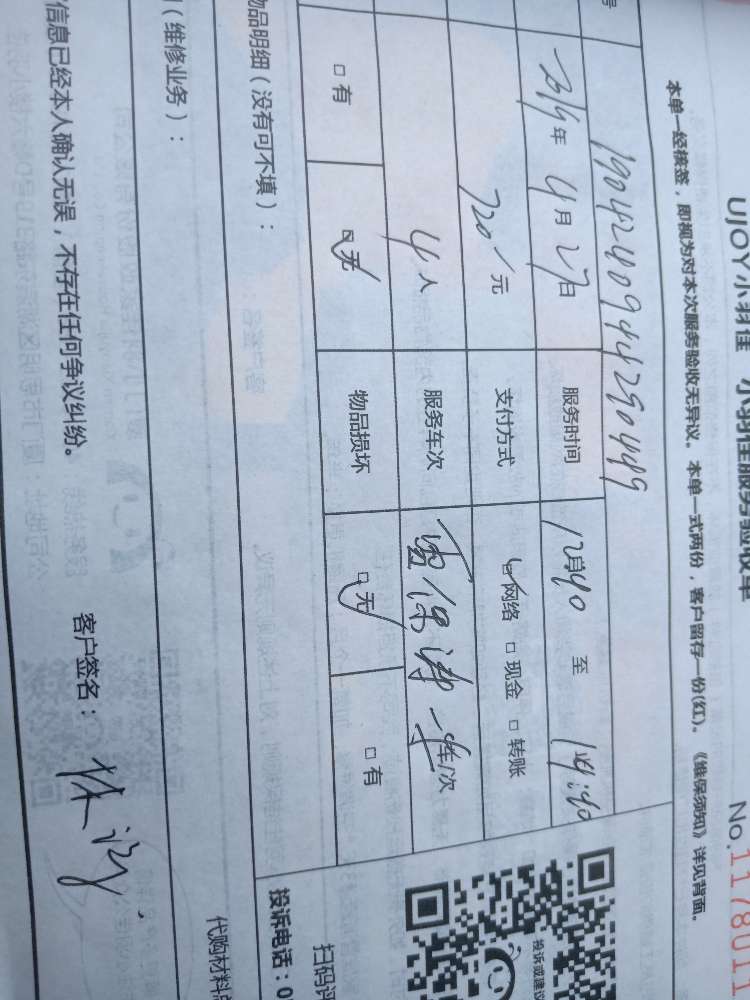 UJOY小羽佳 小羽佳服务验收单
No.1178011
本单一经核签，即视为对本次服务验收无异议。本单一式两份，客户留存一份(红)。《维保须知》详见背面。
号 1904240944250489
年 4月27日 服务时间 至
720 元 支付方式 ☑网络 □现金 □转账
4人 服务车次 车/次
□有 ☑无 物品损坏 ☑无 □有
物品明细（没有可不填）：
投诉或建议
扫码评
投诉电话：0
（维修业务）：
代购材料
信息已经本人确认无误，不存在任何争议纠纷。 客户签名：